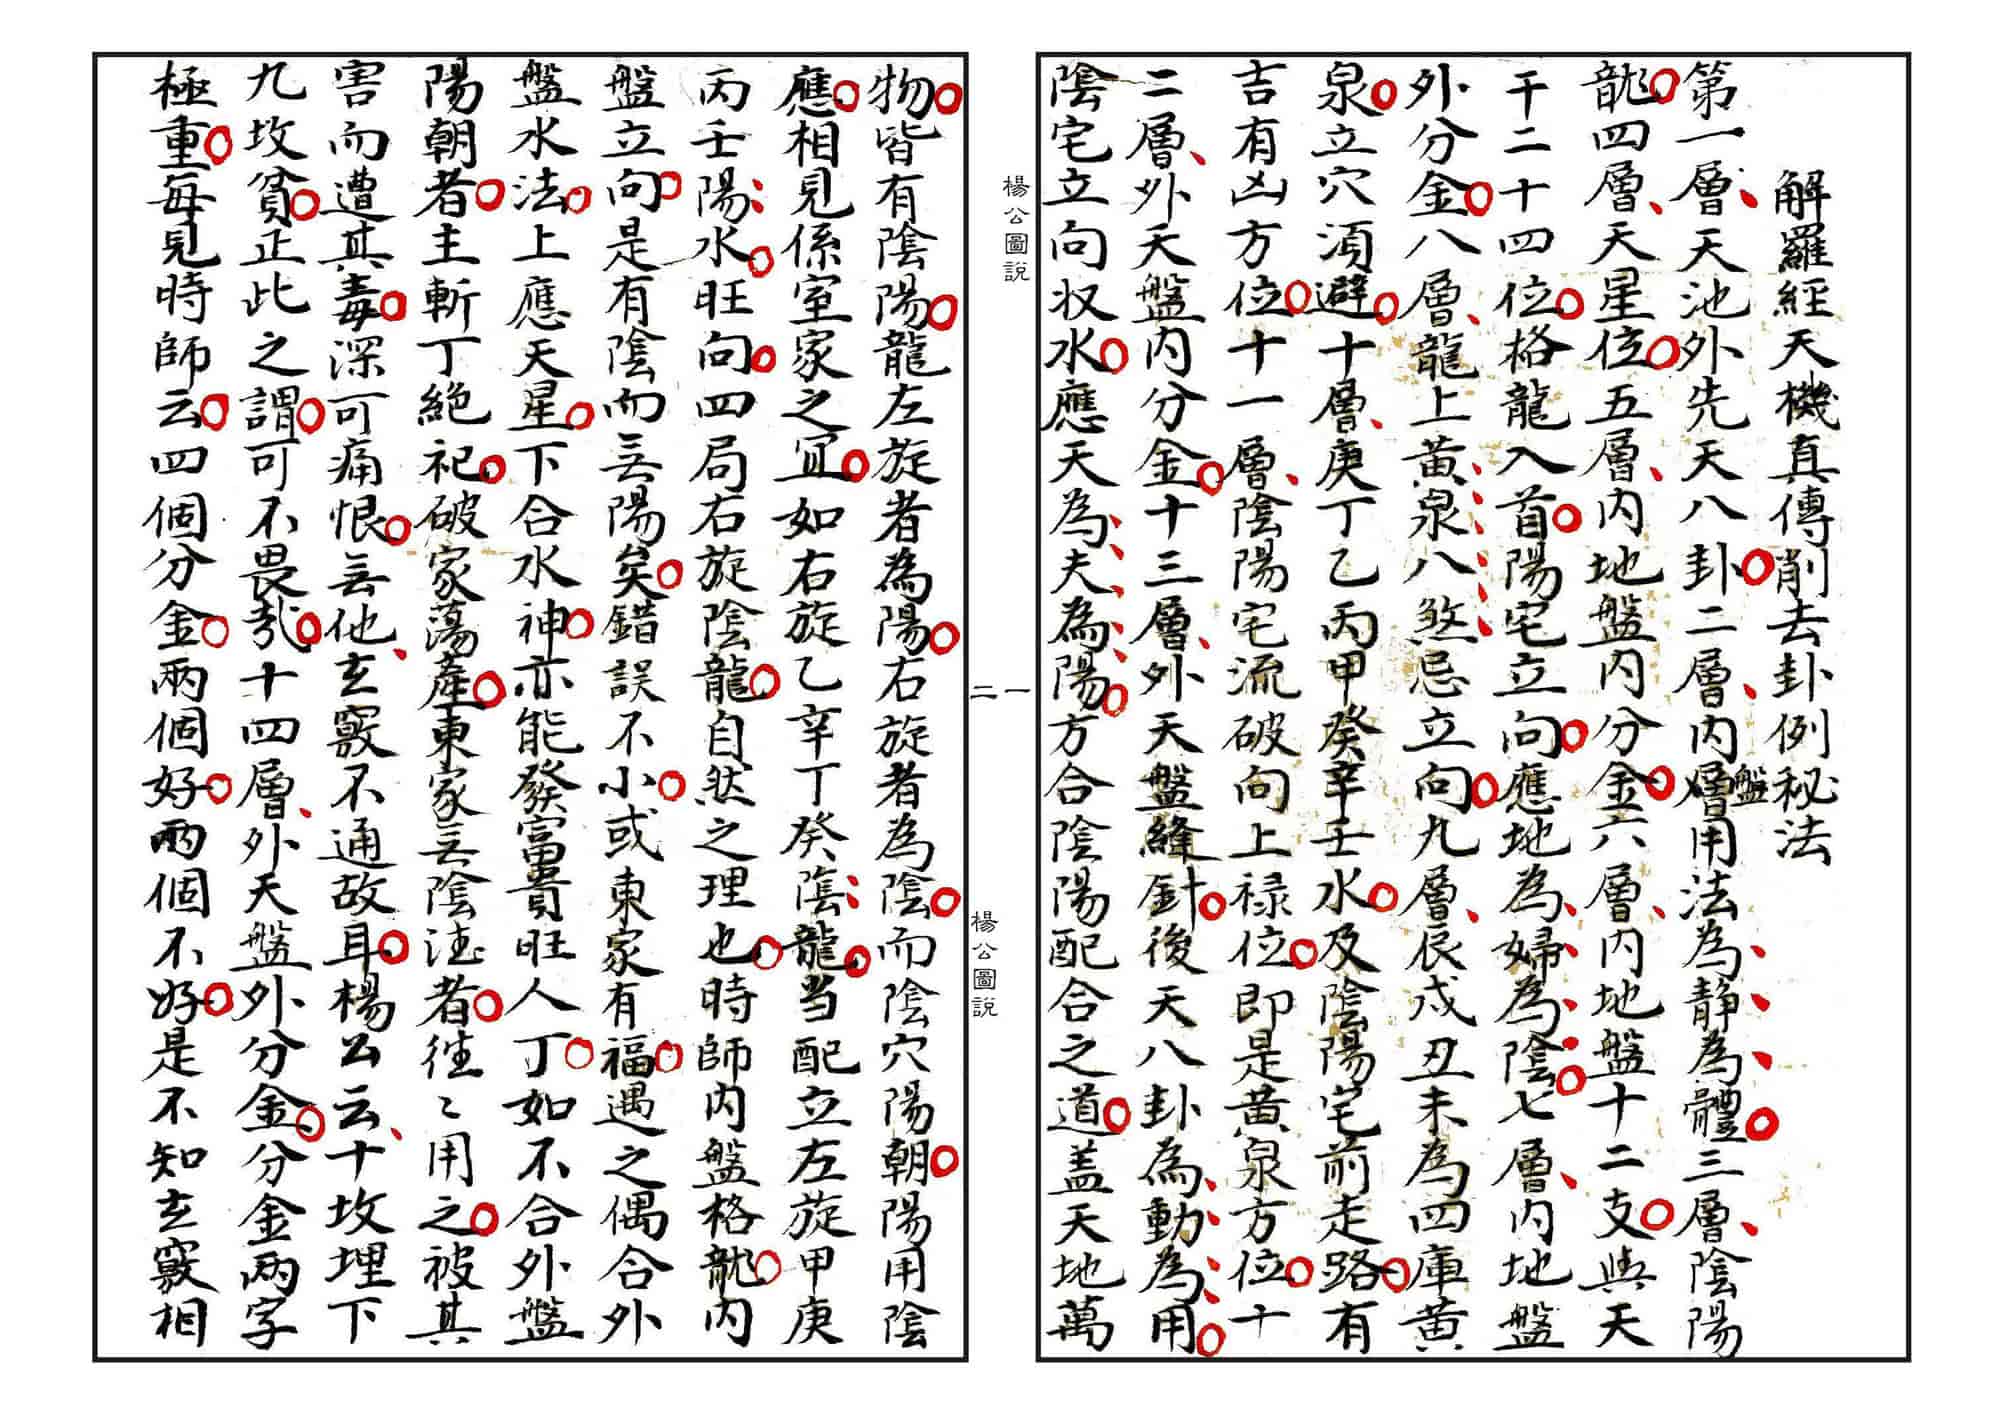 解羅經天機真傳削去卦例秘法
第一層天池外先天八卦二層內層盤用法為靜為體三層陰陽
龍四層天星位五層內地盤內分金六層內地盤十二支與天
干二十四位格龍入首陽宅立向應地為婦為陰七層內地盤
外分金八層龍上黃泉八煞忌立向九層辰戌丑未為四庫黃
泉立穴須避十層庚丁乙丙甲癸辛壬水及陰陽宅前走路有
吉有凶方位十一層陰陽宅流破向上祿位即是黃泉方位十
二層外天盤內分金十三層外天盤縫針後天八卦為動為用
陰宅立向收水應天為夫為陽方合陰陽配合之道蓋天地萬
楊公圖說
一
物皆有陰陽龍左旋者為陽右旋者為陰而陰穴陽朝陽用陰
應相見係室家之冝如右旋乙辛丁癸陰龍当配立左旋甲庚
丙壬陽水旺向四局右旋陰龍自然之理也時師內盤格龍內
盤立向是有陰而無陽矣錯誤不小或東家有福遇之偶合外
盤水法上應天星下合水神亦能發富貴旺人丁如不合外盤
陽朝者主斬丁絕祀破家蕩產東家無陰德者往〻用之被其
害而遭其毒深可痛恨無他玄竅不通故耳楊公云十墳埋下
九墳貧正此之謂可不畏哉十四層外天盤外分金分金兩字
極重每見時師云四個分金兩個好兩個不好是不知玄竅相
楊公圖說
二